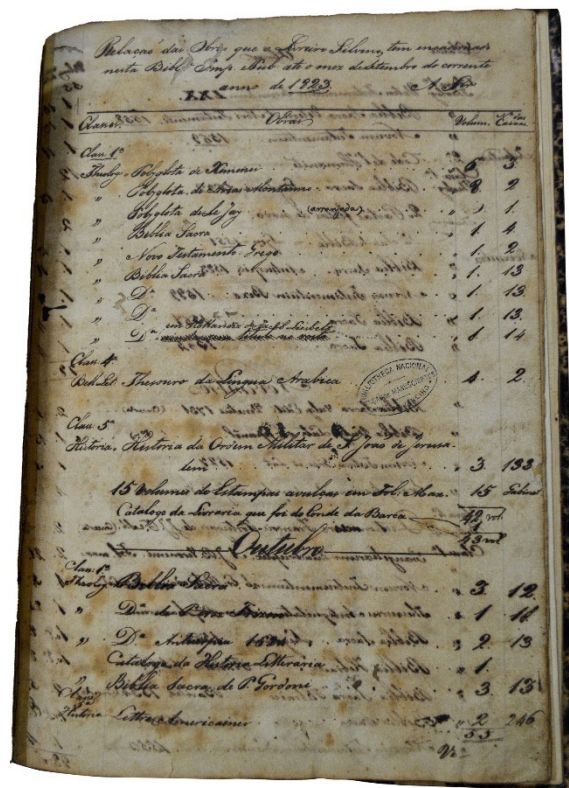 Relacaõ das Obras que o Livreiro Silvino, tem encadernado
nesta Bibl.ª Imp. Pub. até o mez de Setembro do corrente
anno de 1823.
Classes. Obras Volum. N.º das Caixas
Class. 1ª
Theolog. Polyglota de Ximenes 6 3
" Polyglota de Arias Montano 8 2
" Polyglota de Le Jay (arranjada) 1. 1.
" Biblia Sacra 1. 4
" Novo Testamento Grego 1. 2
" Biblia Sacra 1. 13
" Dª 1. 13.
" Dª 1. 13.
" Dª em 1 14
Class. 4ª
Thesouro da Lingua Arabica 4. 2.
Class. 5ª
Historia. Historia da Ordem Militar de S. João de Jerusa-
lem 3. 133
15 Volumes de Estampas avulsas em Fol. Max. 15
Catalogo da Livraria que foi do Conde da Barca 1
42 vol.
43 vol
Outubro
Class. 1ª
Theolog. Biblia Sacra 3. 12
" 1
" Dª Antuerpia 2. 13
Catalogo da Historia Litteraria 1.
" Biblia Sacra de P. Gordoni 3. 13
Class. 5ª
Historia Lettres Americaines 2 246
53
BIBLIOTHECA NACIONAL